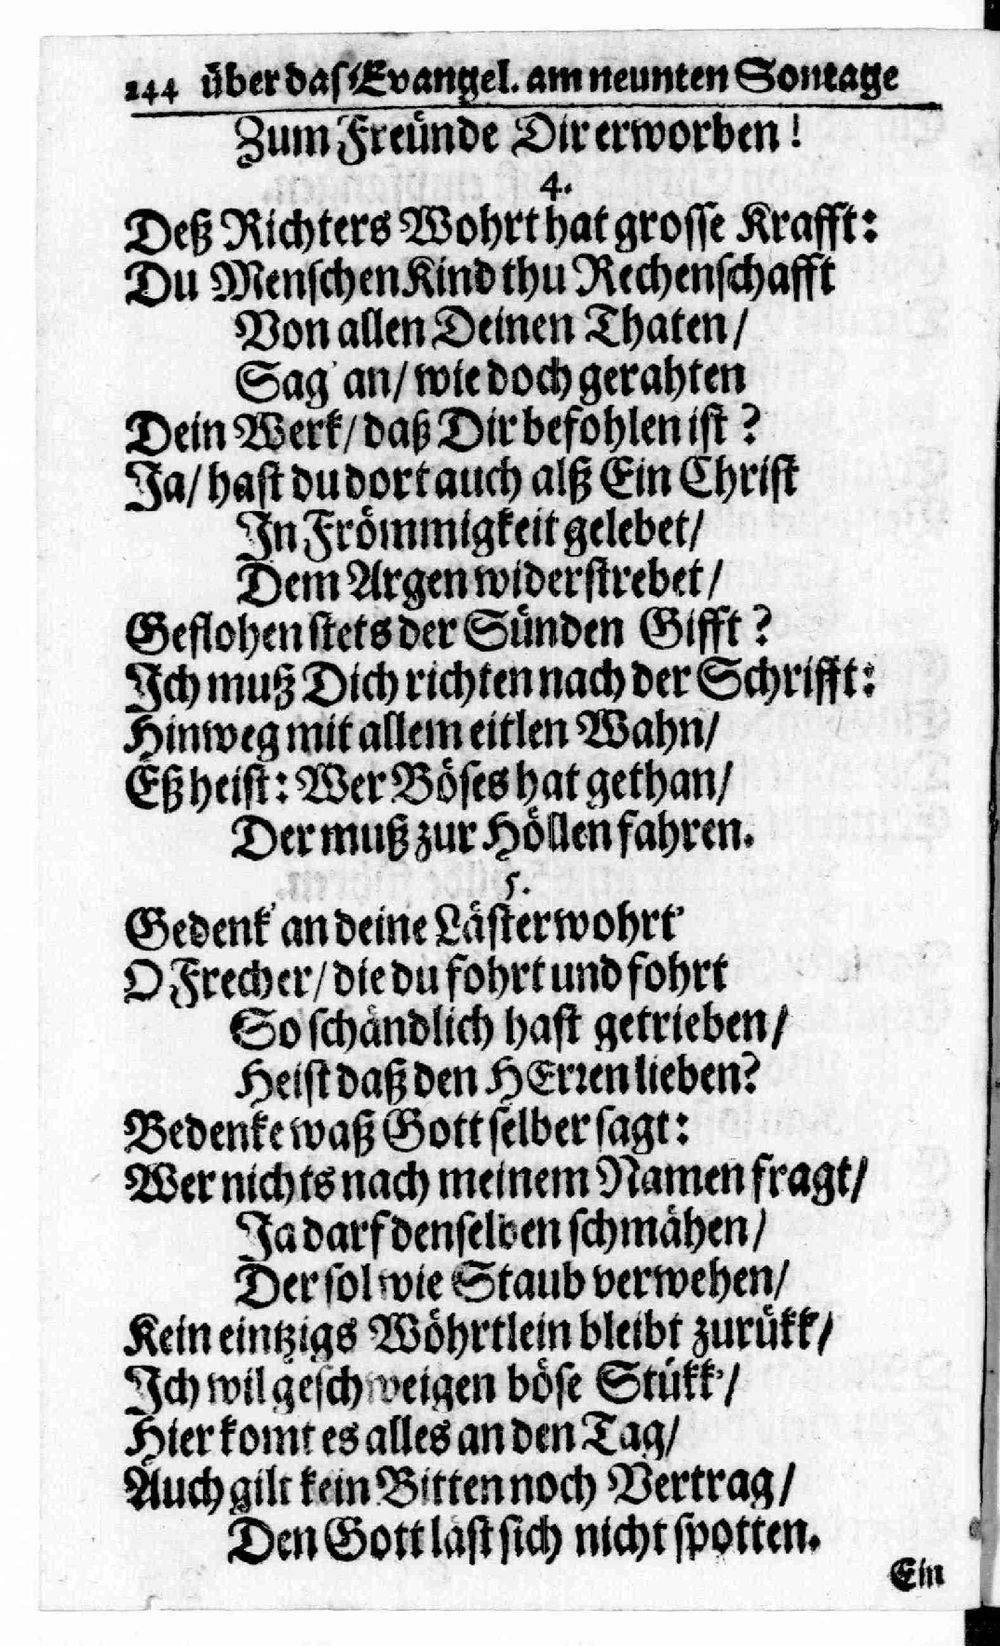 244 über das Evangel. am neunten Sontage
Zum Freünde Dir erworben!
4.
Deß Richters Wohrt hat grosse Krafft:
Du Menschen Kind thu Rechenschafft
Von allen Deinen Thaten/
Sag' an/ wie doch gerahten
Dein Werk/ daß Dir befohlen ist?
Ja/ hast du dort auch alß Ein Christ
In Frömmigkeit gelebet/
Dem Argen widerstrebet/
Geflohen stets der Sünden Gifft?
Ich muß Dich richten nach der Schrifft:
Hinweg mit allem eitlen Wahn/
Eß heist: Wer Böses hat gethan/
Der muß zur Höllen fahren.
5.
Gedenk' an deine Lästerwohrt'
O Frecher/ die du fohrt und fohrt
So schändlich hast getrieben/
Heist daß den HErren lieben?
Bedenke waß Gott selber sagt:
Wer nichts nach meinem Namen fragt/
Ja darf denselben schmähen/
Der sol wie Staub verwehen/
Kein eintzigs Wöhrtlein bleibt zurükk/
Ich wil geschweigen böse Stükk'/
Hier komt es alles an den Tag/
Auch gilt kein Bitten noch Vertrag/
Den Gott läst sich nicht spotten.
Ein